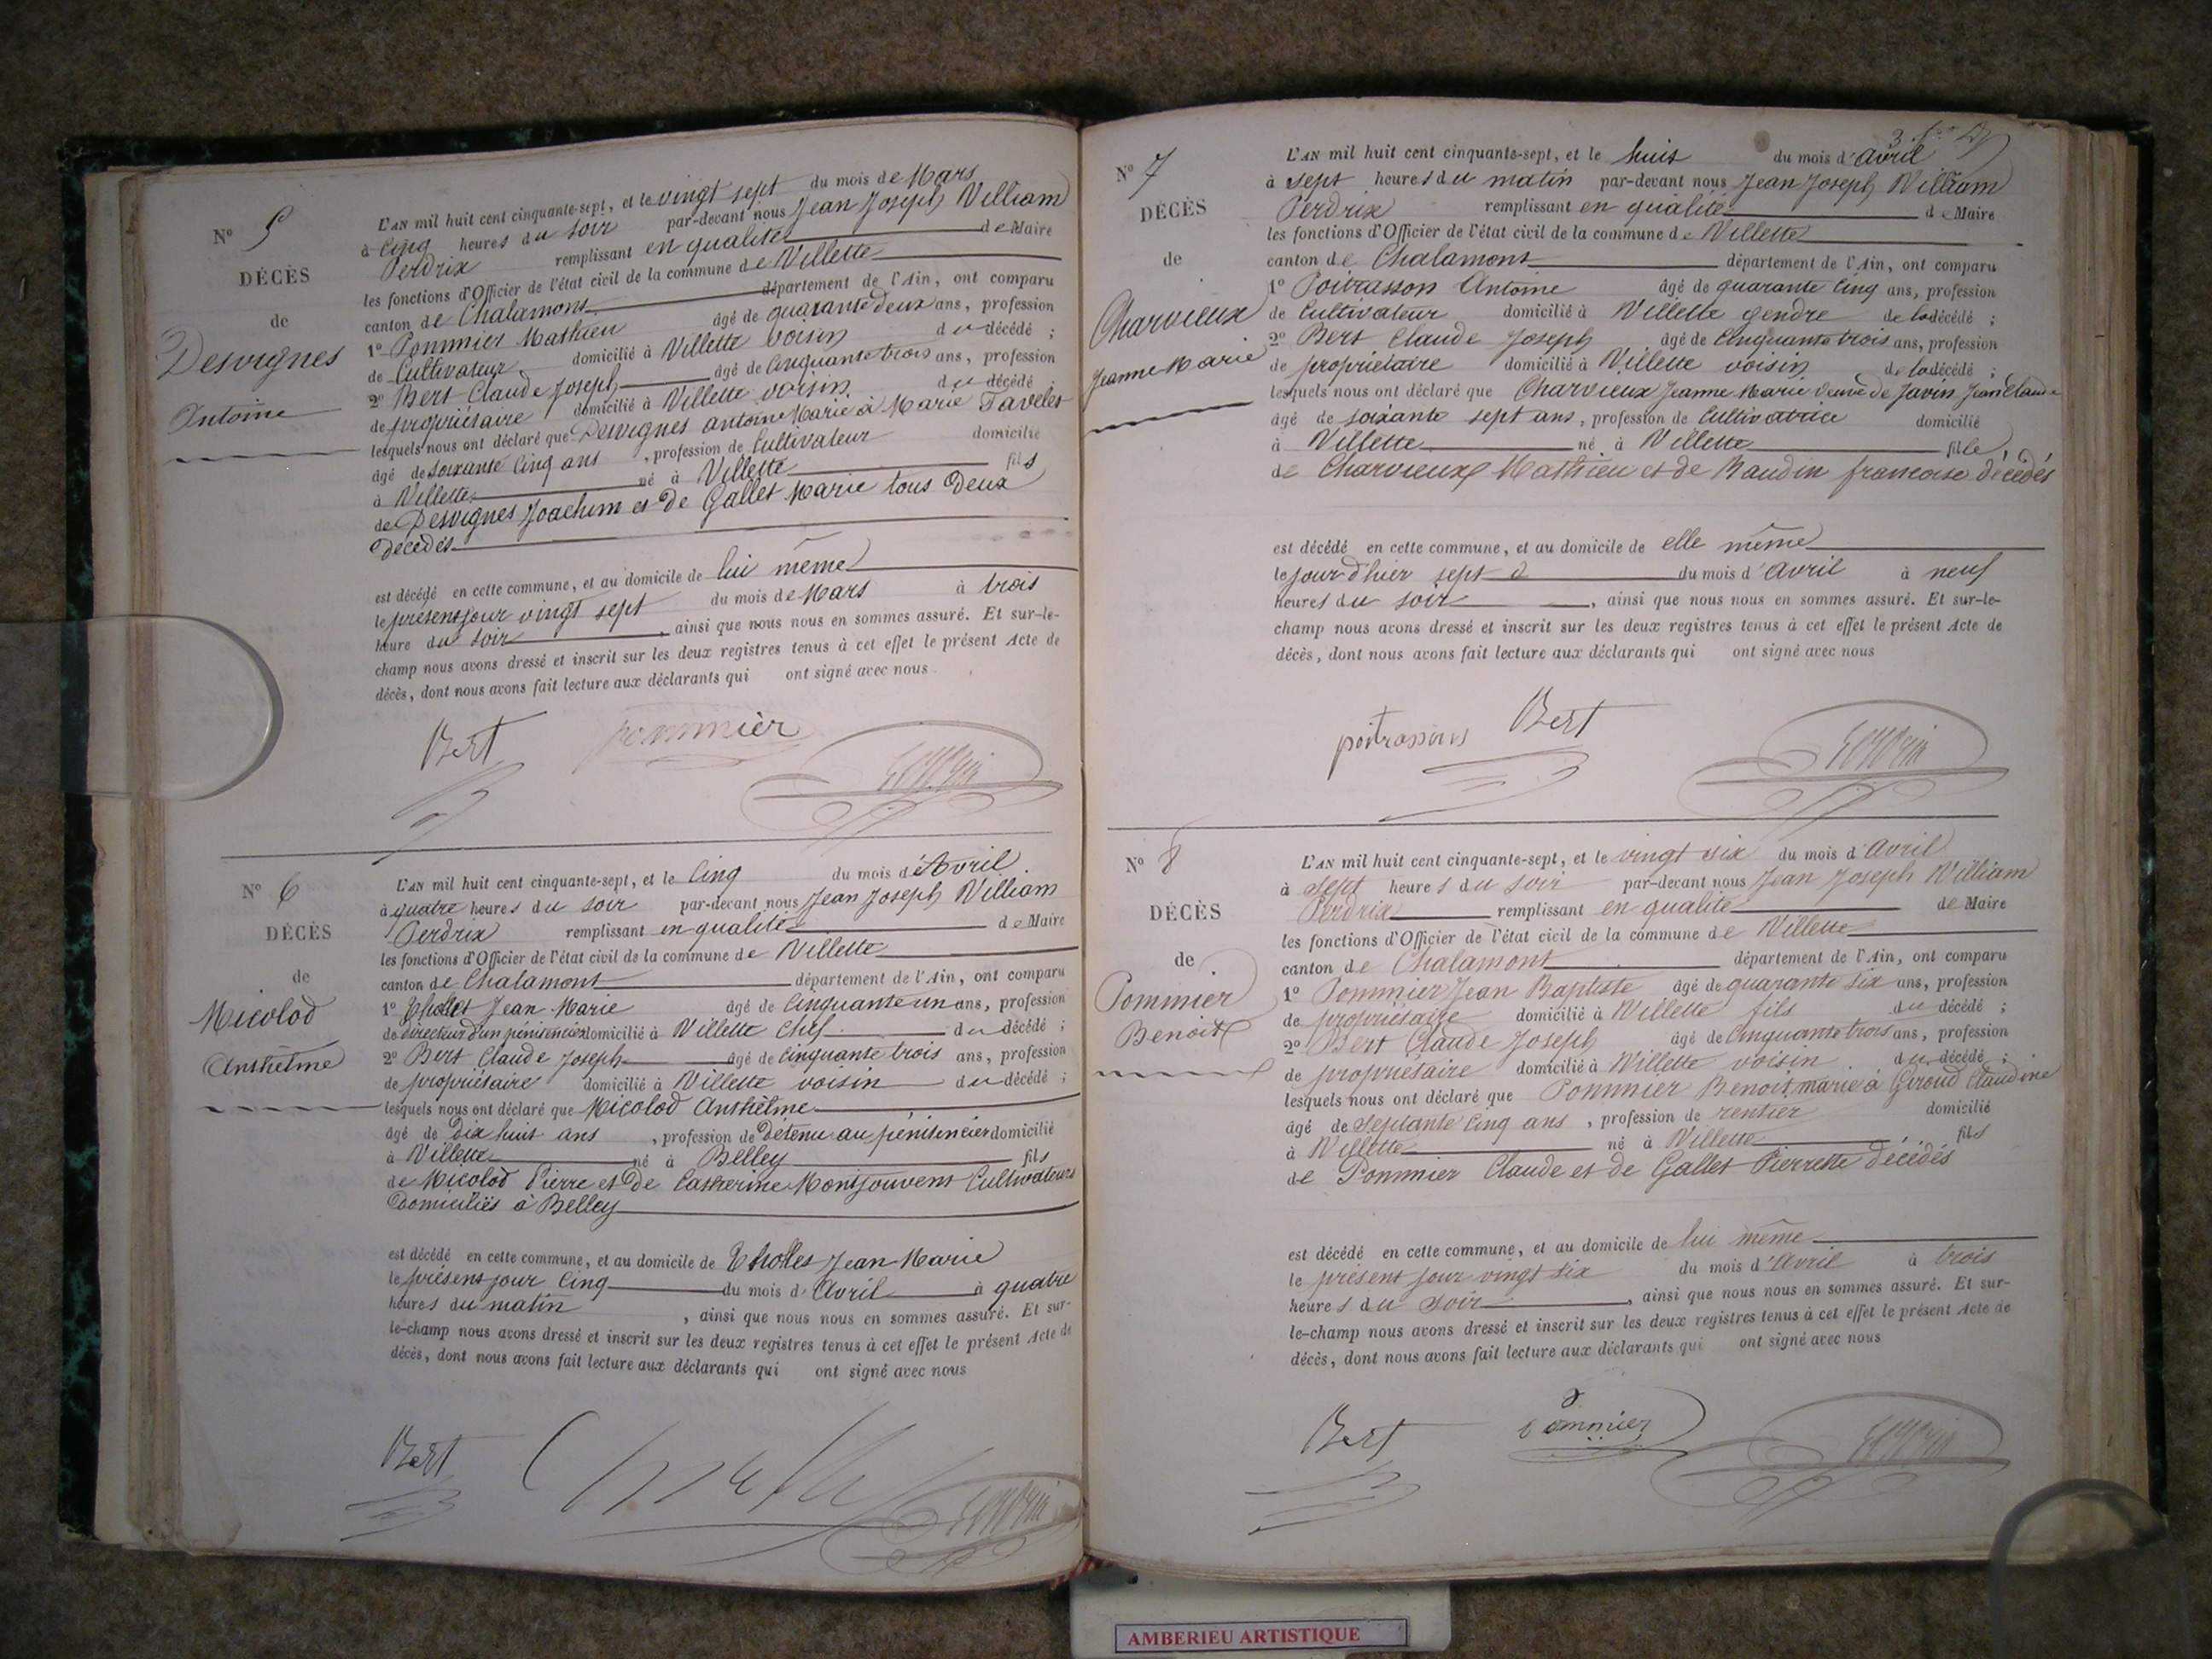 N° 5
DÉCÈS
de
Desvignes
Antoine
L'AN mil huit cent cinquante-sept, et le vingt sept du mois de Mars
à cinq heures du soir par-devant nous Jean Joseph William
Perdrix remplissant en qualité de Maire
les fonctions d'Officier de l'état civil de la commune de Villette
canton de Chalamont département de l'Ain, ont comparu
1° Pommier Mathieu âgé de quarante deux ans, profession
de Cultivateur domicilié à Villette voisin du décédé ;
2° Bert Claude Joseph âgé de cinquante trois ans, profession
de propriétaire domicilié à Villette voisin du décédé ;
lesquels nous ont déclaré que Desvignes antoine Marié à Marie Tavelet
âgé de soixante cinq ans , profession de Cultivateur domicilié
à Villette né à Villette fils
de Desvignes Joachim et de Gallet Marie tous Deux
Décédés
est décédé en cette commune, et au domicile de lui même
le présent jour vingt sept du mois de Mars à trois
heure du soir , ainsi que nous nous en sommes assuré. Et sur-le-
champ nous avons dressé et inscrit sur les deux registres tenus à cet effet le présent Acte de
décès, dont nous avons fait lecture aux déclarants qui ont signé avec nous
Bert pommier
N° 6
DÉCÈS
de
Micolod
Anthelme
L'AN mil huit cent cinquante-sept, et le cinq du mois d'Avril
à quatre heures du soir par-devant nous Jean Joseph William
Perdrix remplissant en qualité de Maire
les fonctions d'Officier de l'état civil de la commune de Villette
canton de Chalamont département de l'Ain, ont comparu
1° Jean Marie âgé de cinquante un ans, profession
de directeur d'un pénitencier domicilié à Villette Chef du décédé ;
2° Bert Claude Joseph âgé de cinquante trois ans, profession
de propriétaire domicilié à Villette voisin du décédé ;
lesquels nous ont déclaré que Micolod Anthelme
âgé de Dix huit ans , profession de Détenu au pénitencier domicilié
à Villette né à Belley fils
de Micolod Pierre et De Catherine Montjouvent Cultivateurs
Domiciliés à Belley
est décédé en cette commune, et au domicile de Jean Marie
le présent jour cinq du mois d'Avril à quatre
heures du matin , ainsi que nous nous en sommes assuré. Et sur-
le-champ nous avons dressé et inscrit sur les deux registres tenus à cet effet le présent Acte de
décès, dont nous avons fait lecture aux déclarants qui ont signé avec nous
Bert
N° 7
DÉCÈS
de
Charvieux
Jeanne Marie
L'AN mil huit cent cinquante-sept, et le huit du mois d'Avril
à sept heures du matin par-devant nous Jean Joseph William
Perdrix remplissant en qualité de Maire
les fonctions d'Officier de l'état civil de la commune de Villette
canton de Chalamont département de l'Ain, ont comparu
1° Poitrasson Antoine âgé de quarante cinq ans, profession
de Cultivateur domicilié à Villette gendre de la décédé ;
2° Bert Claude Joseph âgé de cinquante trois ans, profession
de propriétaire domicilié à Villette voisin de la décédé ;
lesquels nous ont déclaré que Charvieux Jeanne Marie Veuve de Javin Jean Claude
âgé de soixante sept ans, profession de Cultivatrice domicilié
à Villette né à Villette fille
de Charvieux Mathieu et de Baudin francoise décédés
est décédé en cette commune, et au domicile de elle même
le jour d'hier sept du mois d'Avril à neuf
heures du soir , ainsi que nous nous en sommes assuré. Et sur-le-
champ nous avons dressé et inscrit sur les deux registres tenus à cet effet le présent Acte de
décès, dont nous avons fait lecture aux déclarants qui ont signé avec nous
Bert
N° 8
DÉCÈS
de
Pommier
Benoit
L'AN mil huit cent cinquante-sept, et le vingt six du mois d'Avril
à sept heures du soir par-devant nous Jean Joseph William
Perdrix remplissant en qualité de Maire
les fonctions d'Officier de l'état civil de la commune de Villette
canton de Chalamont département de l'Ain, ont comparu
1° Pommier Jean Baptiste âgé de quarante six ans, profession
de propriétaire domicilié à Villette fils du décédé ;
2° Bert Claude Joseph âgé de cinquante trois ans, profession
de propriétaire domicilié à Villette voisin du décédé ;
lesquels nous ont déclaré que Pommier Benoit marié à Giroud Claudine
âgé de septante cinq ans , profession de rentier domicilié
à Villette né à Villette fils
de Pommier Claude et de Gallet Pierrette décédés
est décédé en cette commune, et au domicile de lui même
le présent jour vingt six du mois d'Avril à trois
heures du soir , ainsi que nous nous en sommes assuré. Et sur-
le-champ nous avons dressé et inscrit sur les deux registres tenus à cet effet le présent Acte de
décès, dont nous avons fait lecture aux déclarants qui ont signé avec nous
Bert Pommier
AMBERIEU ARTISTIQUE